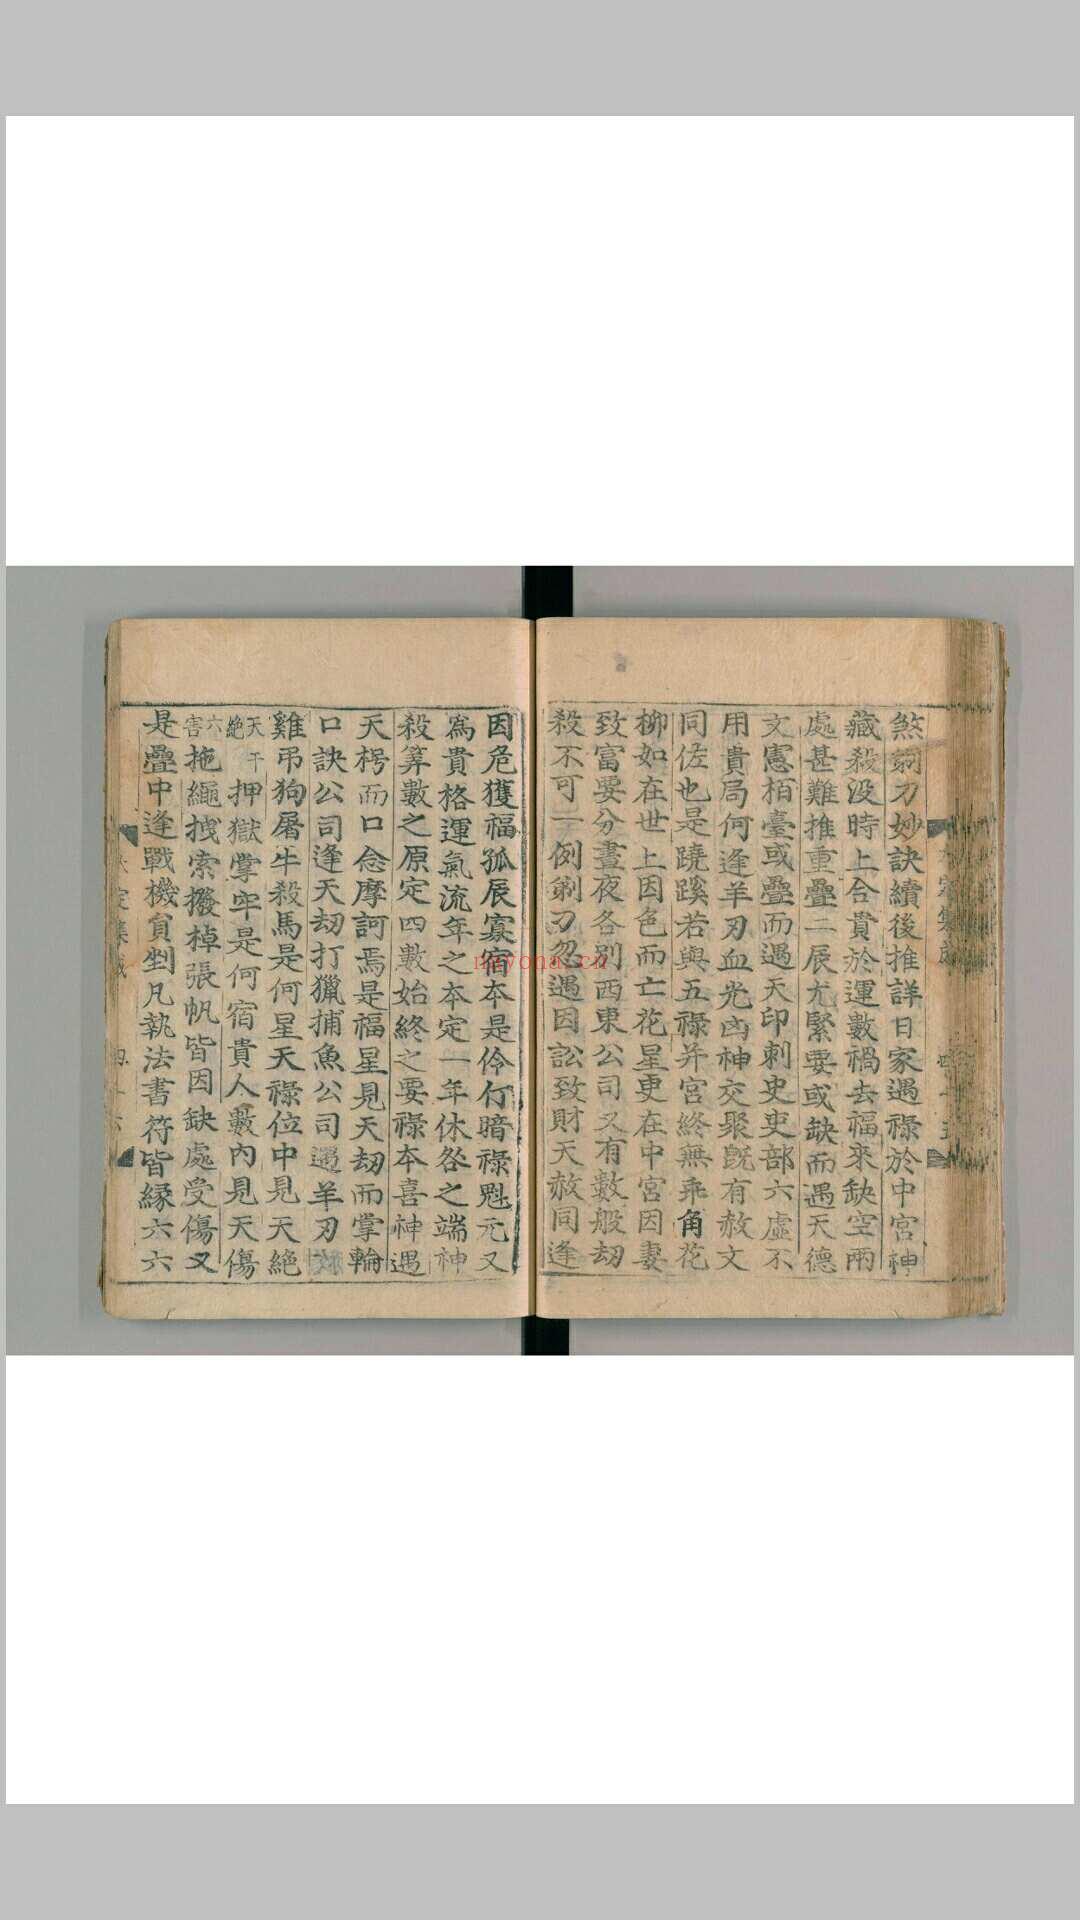 煞剃刀妙訣續後推詳日家遇祿於中宮神
藏殺没時上合貴於運數禍去福來缺空兩
處甚難推重疊二辰尤緊要或缺而遇天德
文憲栢臺或疊而遇天印刺史吏部六虛不
用貴局何逢羊刃血光凶神交聚旣有赦文
同佐也是蹺蹊若與五祿并宮終無乖角花
柳如在世上因色而亡花星更在中宮因妻
致富要分晝夜各别西東公司又有數般刼
殺不可一例剃刀忽遇因訟致財天赦同逢
因危獲福孤辰寡宿本是伶仃暗祿魁元又
為貴格運氣流年之本定一年休咎之端神
殺筭數之原定四數始終之要祿本喜神遇
天枵而口念摩訶焉是福星見天刼而掌輪
口訣公司逢天刼打獵捕魚公司遇羊刃
雞弔狗屠牛殺馬是何星天祿位中見天絕
天干絶押獄掌牢是何宿貴人數內見天傷
六害拖繩拽索撥棹張帆皆因缺處受傷又
是疊中逢戰機負剉凡執法書符皆緣六六
nayona.cn